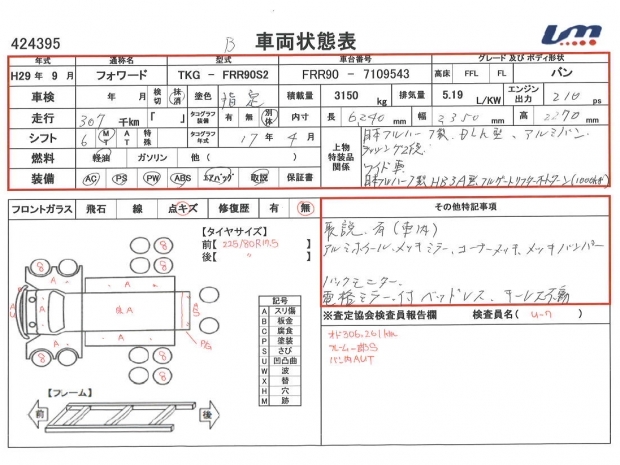 424395 B 車両状態表 Lm
年式 通称名 型式 車台番号 グレード 及び ボディ形状
H29 年 9 月 フォワード TKG - FRR90S2 FRR90 - 7109543 高床 FFL FL バン
車検 年 月 検切 抹済 塗色 指定 積載量 3150 kg 排気量 5.19 L/KW エンジン出力 210 ps
走行 307 千km 「 」 タコグラフ装備 有 無 別体 内寸 長 6240 mm 幅 2350 mm 高 2270 mm
シフト 6 MT AT 特殊 タコグラフ年式 17 年 4 月 上物特装品関係 日本フルハーフ製、 アルミバン、
ラッシング2段
燃料 軽油 ガソリン 他 ( ) ワイド車
装備 AC PS PW ABS エアバッグ 取説 保証書 日本フルハーフ製
フロントガラス 飛石 線 点キズ 修復歴 有 無 その他特記事項
【タイヤサイズ】
前【 225/80R17.5 】
後【 〃 】
取説、有(車内)
アルミホイール、メッキミラー、コーナーメッキ、メッキバンパー
バックモニター、
電格ミラー付 ベッドレス、キーレス不動
8 8 8 8 8 8
A A A A A
記号
A スリ傷
B 板金
C 腐食
P 塗装
S さび
U 凹凸曲
W 波
X 替
H 穴
M 跡
※査定協会検査員報告欄 検査員名( )
オド306,261km
フレーム一部S
バン内AUT
【フレーム】
前 後